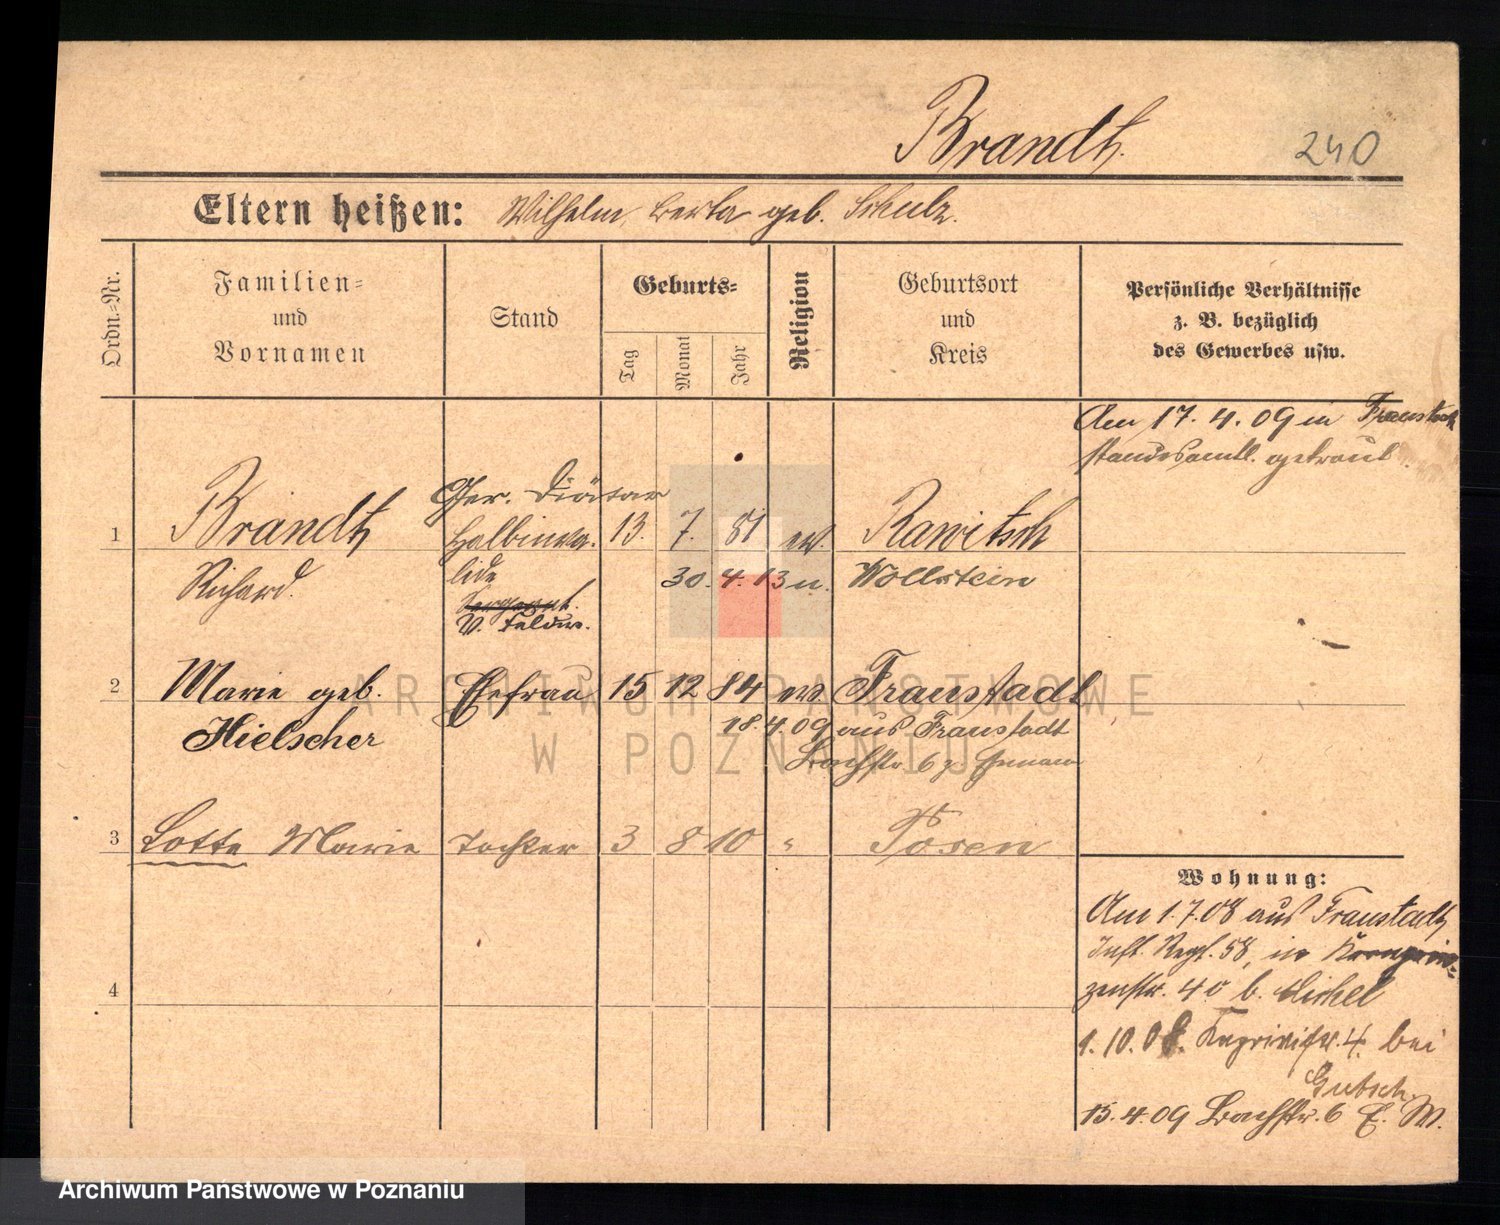 Brandt.
240
Eltern heißen: Wilhelm, Berta geb. Schulz.
Ordn.-Nr.
Familien-
und
Vornamen
Stand
Geburts-
Tag
Monat
Jahr
Religion
Geburtsort
und
Kreis
Persönliche Verhältnisse
z. B. bezüglich
des Gewerbes usw.
Am 17. 4. 09 in Fraustadt
standesamtl. getraut.
Ger. Diätar
1 Brandt Halbinva- 13. 7. 81 ev. Rawitsch
Richard. lide 30. 4. 13 n. Wollstein
Sergeant.
V. Feldw.
2 Marie geb. Ehefrau 15 12 84 ev. Fraustadt
Hielscher 18. 4. 09 aus Fraustadt
Bachstr. 6 z. Ehemann
3 Lotte Marie Tochter 3 8 10 " Posen
4
Wohnung:
Am 1. 7. 08 aus Fraustadt
Inft. Regt. 58, in Kronprin-
zenstr. 40 b.
1. 10. 08. Kaprivistr. 4. bei
Gutsch.
15. 4. 09 Bachstr. 6 E. W.
ARCHIWUM PAŃSTWOWE
W POZNANIU
Archiwum Państwowe w Poznaniu